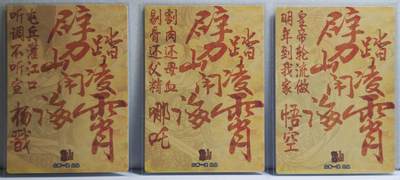 踏凌霄
劈山闹海
屯兵灌江口
听调不听宣
杨戬
踏凌霄
劈山闹海
割肉还母血
剔骨还父精
哪吒
踏凌霄
劈山闹海
皇帝轮流做
明年到我家
悟空